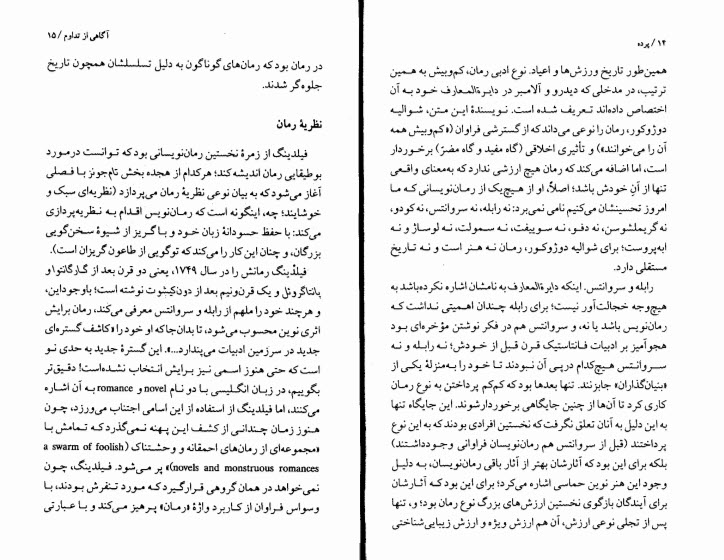 ۱۴/ پرده
همین‌طور تاریخ ورزش‌ها و اعیاد. نوع ادبی رمان، کم‌وبیش به همین
ترتیب، در مدخلی که دیدرو و آلامبر در دایرةالمعارف خود به آن
اختصاص داده‌اند تعریف شده است. نویسندهٔ این متن، شوالیه
دوژوکور، رمان را نوعی می‌داند که از گسترشی فراوان («کم‌وبیش همه
آن را می‌خوانند») و تأثیری اخلاقی («گاه مفید و گاه مضرّ») برخوردار
است، اما اضافه می‌کند که رمان هیچ ارزشی ندارد که به‌معنای واقعی
تنها از آنِ خودش باشد؛ اصلاً، او از هیچ‌یک از رمان‌نویسانی که ما
امروز تحسینشان می‌کنیم نامی نمی‌برد: نه رابله، نه سروانتس، نه کودو،
نه گریملشوسن، نه دفو، نه سویفت، نه سمولت، نه لوساژ و نه
ابه‌پروست؛ برای شوالیه دوژوکور، رمان نه هنر است و نه تاریخ
مستقلی دارد.
رابله و سروانتس. اینکه دایرةالمعارف به نامشان اشاره نکرده‌باشد به
هیچ‌وجه خجالت‌آور نیست؛ برای رابله چندان اهمیتی نداشت که
رمان‌نویس باشد یا نه، و سروانتس هم در فکر نوشتن مؤخره‌ای بود
هجوآمیز بر ادبیات فانتاستیک قرن قبل از خودش؛ نه رابله و نه
سروانتس هیچ‌کدام درپی آن نبودند تا خود را به‌منزلهٔ یکی از
«بنیان‌گذاران» جابزنند. تنها بعدها بود که کم‌کم پرداختن به نوع رمان
کاری کرد تا آن‌ها از چنین جایگاهی برخوردارشوند. این جایگاه تنها
به این دلیل به آنان تعلق نگرفت که نخستین افرادی بودند که به این نوع
پرداختند (قبل از سروانتس هم رمان‌نویسان فراوانی وجودداشتند)
بلکه برای این بود که آثارشان بهتر از آثار باقی رمان‌نویسان، به دلیل
وجود این هنر نوین حماسی اشاره می‌کرد؛ برای این بود که آثارشان
برای آیندگان بازگوی نخستین ارزش‌های بزرگ نوع رمان بود؛ و، تنها
پس از تجلی نوعی ارزش، آن هم ارزش ویژه و ارزش زیبایی‌شناختی
آگاهی از تداوم / ۱۵
در رمان بود که رمان‌های گوناگون به دلیل تسلسلشان همچون تاریخ
جلوه‌گر شدند.
نظریهٔ رمان
فیلدینگ از زمرهٔ نخستین رمان‌نویسانی بود که توانست درمورد
بوطیقایی رمان اندیشه‌کند؛ هرکدام از هجده بخش تام‌جونز با فصلی
آغاز می‌شود که به بیان نوعی نظریهٔ رمان می‌پردازد (نظریه‌ای سبک و
خوشایند؛ چه، اینگونه است که رمان‌نویس اقدام به نظریه‌پردازی
می‌کند: با حفظ حسودانهٔ زبان خود و با گریز از شیوهٔ سخن‌گویی
بزرگان، و چنان این کار را می‌کند که توگویی از طاعون گریزان است).
فیلدینگ رمانش را در سال ۱۷۴۹، یعنی دو قرن بعد از گارگانتوا و
پانتاگروئل و یک قرن‌ونیم بعد از دون‌کیشوت نوشته است؛ باوجوداین،
و هرچند خود را ملهم از رابله و سروانتس معرفی می‌کند، رمان برایش
اثری نوین محسوب می‌شود، تا بدان‌جا که او خود را «کاشف گستره‌ای
جدید در سرزمین ادبیات می‌پندارد...». این گسترهٔ جدید به حدی نو
است که حتی هنوز اسمی نیز برایش انتخاب نشده‌است! دقیق‌تر
بگوییم، در زبان انگلیسی با دو نام novel و romance به آن اشاره
می‌کنند، اما فیلدینگ از استفاده از این اسامی اجتناب می‌ورزد، چون
هنوز زمان چندانی از کشف این پهنه نمی‌گذرد که تمامش با
«مجموعه‌ای از رمان‌های احمقانه و وحشتناک (a swarm of foolish
novels and monstruous romances)» پر می‌شود. فیلدینگ، چون
نمی‌خواهد در همان گروهی قرارگیرد که مورد تنفرش بودند، با
وسواس فراوان از کاربرد واژهٔ «رمان» پرهیز می‌کند و با عبارتی